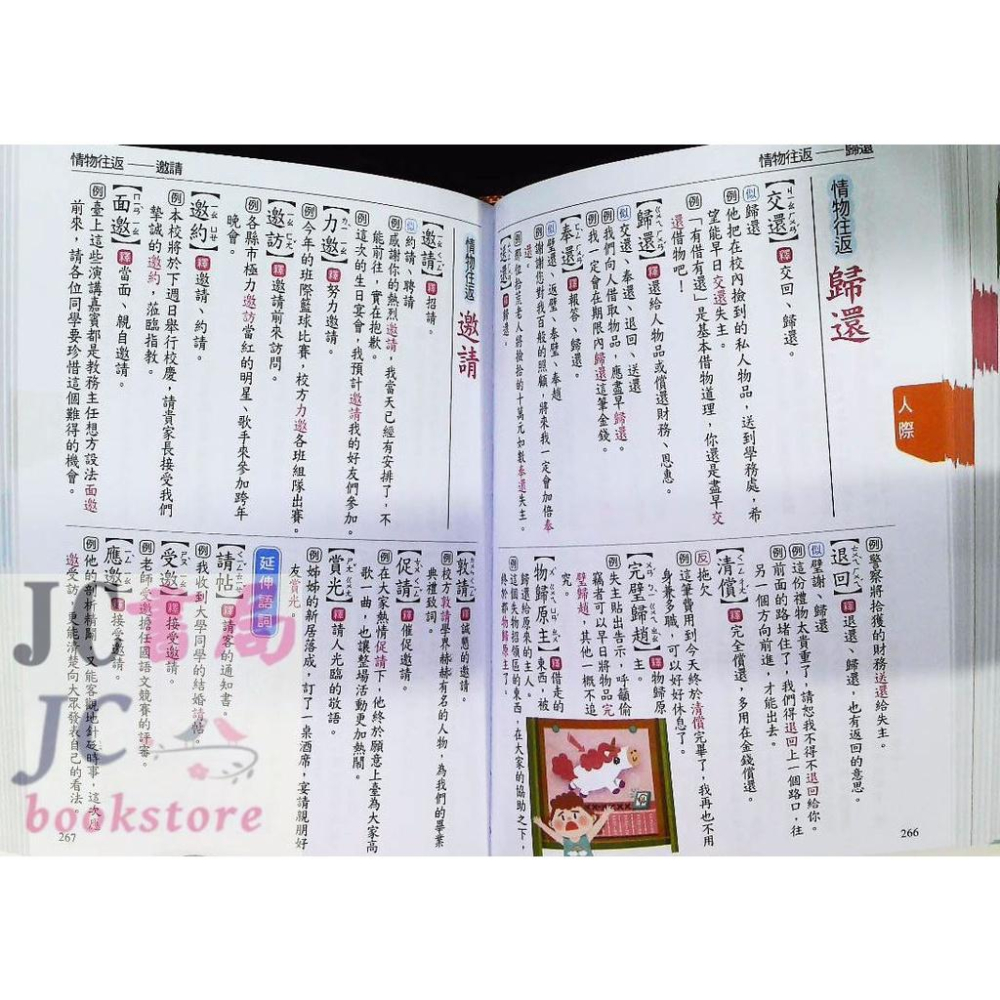 情物往返——歸還
人際
情物往返 歸還
【交還】釋交回、歸還。
似歸還
例他把在校內撿到的私人物品，送到學務處，希
望能早日交還失主。
例「有借有還」是基本借物道理，你還是盡早交
還借物吧！
【歸還】釋還給人物品或償還財務、恩惠。
似交還、奉還、退回、送還
例我們向人借取物品，應盡早歸還。
例我一定會在期限內歸還這筆金錢。
【奉還】釋報答、歸還。
似歸還、返璧、奉璧、奉趙
例謝謝您對我百般的照顧，將來我一定會加倍奉
還。
例那位拾荒老人將撿拾的十萬元如數奉還失主。
【送還】釋歸還。
例警察將拾獲的財務送還給失主。
【退回】釋退還、歸還，也有返回的意思。
似璧謝、歸還
例這份禮物太貴重了，請恕我不得不退回給你。
例前面的路堵住了，我們得退回上一個路口，往
另一個方向前進，才能出去。
【清償】釋完全償還，多用在金錢償還。
反拖欠
例這筆費用到今天終於清償完畢了，我再也不用
身兼多職，可以好好休息了。
【完璧歸趙】釋物歸原
主。
例失主貼出告示，呼籲偷
竊者可以早日將物品完
璧歸趙，其他一概不追
究。
【物歸原主】釋借走的
東西，被
送還給原來的主人。
例這個失物招領區的東西，在大家的協助之下，
終於都物歸原主了。
266
情物往返——邀請
情物往返 邀請
【邀請】釋招請。
似約請、聘請
例感謝你的熱烈邀請，我當天已經有安排了，不
能前往，實在抱歉。
例這次的生日宴會，我預計邀請我的好友們參加。
【力邀】釋努力邀請。
例今年的班際籃球比賽，校方力邀各班組隊出賽。
【邀訪】釋邀請前來訪問。
例各縣市極力邀訪當紅的明星、歌手來參加跨年
晚會。
【邀約】釋邀請、約請。
例本校將於下週日舉行校慶，請貴家長接受我們
摯誠的邀約，蒞臨指教。
【面邀】釋當面、親自邀請。
例臺上這些演講嘉賓都是教務主任想方設法面邀
前來，請各位同學要珍惜這個難得的機會。
【敦請】釋誠懇的邀請。
例校方敦請學界赫赫有名的人物，為我們的畢業
典禮致詞。
【促請】釋催促邀請。
例在大家熱情促請下，他終於願意上臺為大家高
歌一曲，也讓整場活動更加熱鬧。
【賞光】釋請人光臨的敬語。
例姊姊的新居落成，訂了一桌酒席，宴請親朋好
友賞光。
延伸語詞
【請帖】釋請客的通知書。
例我收到大學同學的結婚請帖。
【受邀】釋接受邀請。
例老師受邀擔任國語文競賽的評審。
【應邀】釋接受邀請。
例他的剖析精闢，又能客觀地針砭時事，這次應
邀受訪，更能清楚向大眾發表自己的看法
267
JC書局
JC
bookstore